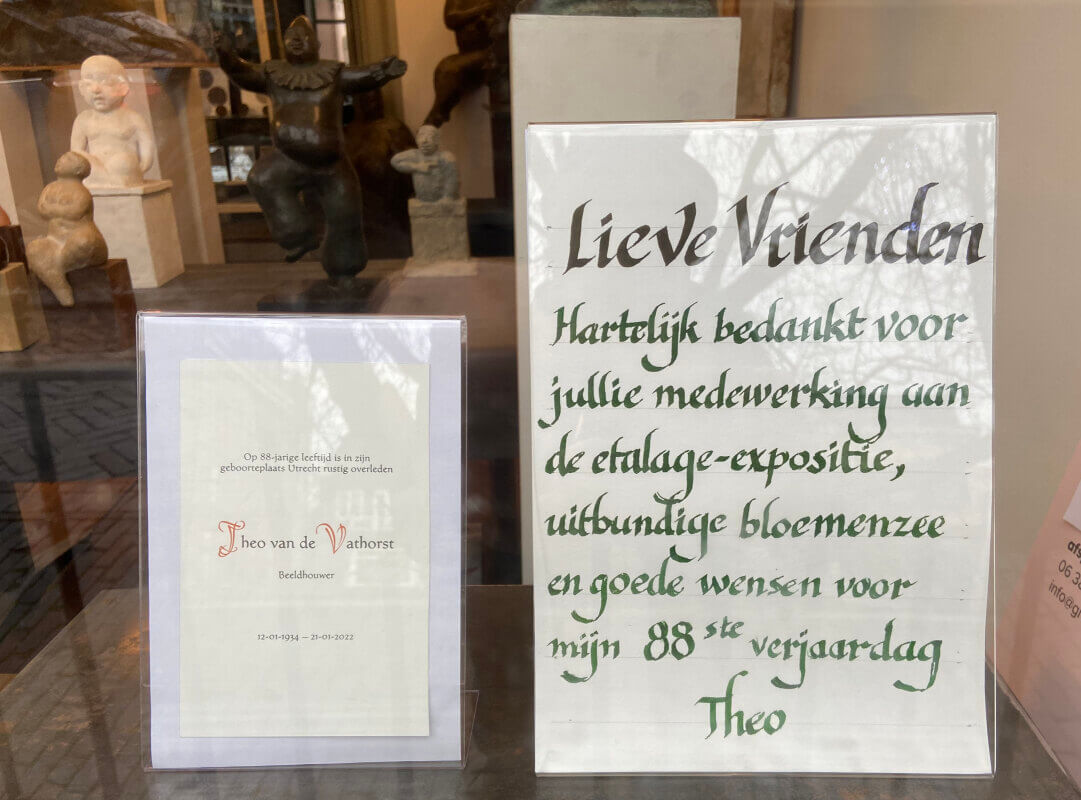 Op 88-jarige leeftijd is in zijn
geboorteplaats Utrecht rustig overleden
Theo van de Vathorst
Beeldhouwer
12-01-1934 — 21-01-2022
Lieve Vrienden
Hartelijk bedankt voor
jullie medewerking aan
de etalage-expositie,
uitbundige bloemenzee
en goede wensen voor
mijn 88ste verjaardag
Theo